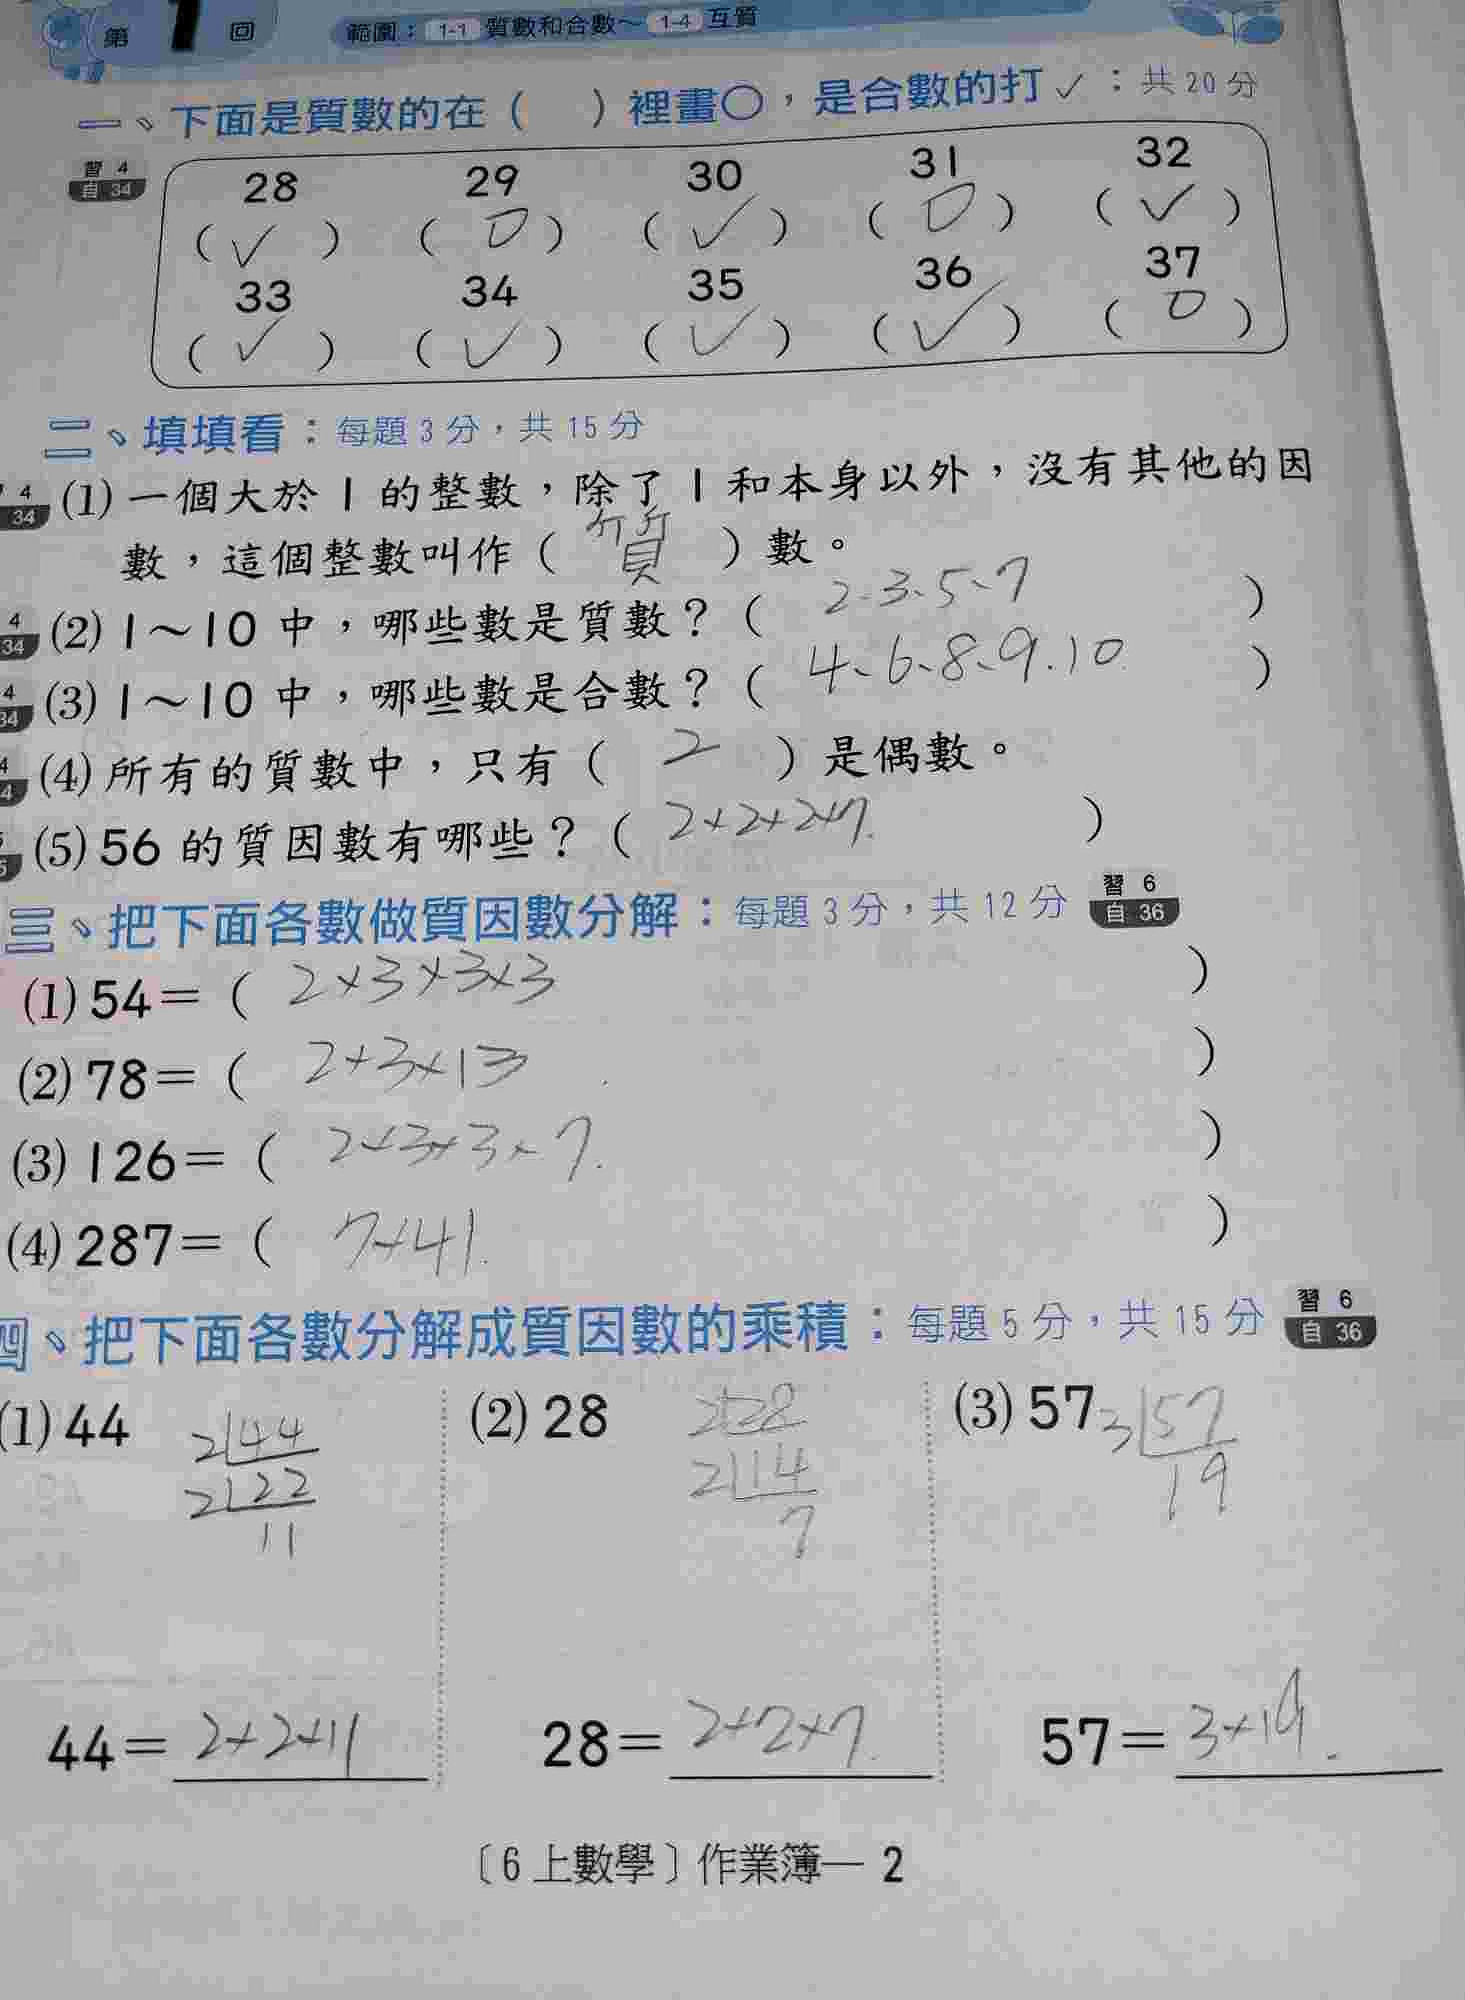 第 1 回 範圍：1-1 質數和合數～1-4 互質
一、下面是質數的在（ ）裡畫○，是合數的打✓：共 20 分
習 4
自 34
28 29 30 31 32
（ ✓ ） （ O ） （ ✓ ） （ O ） （ ✓ ）
33 34 35 36 37
（ ✓ ） （ ✓ ） （ ✓ ） （ ✓ ） （ O ）
二、填填看：每題 3 分，共 15 分
4
34
(1) 一個大於 1 的整數，除了 1 和本身以外，沒有其他的因
數，這個整數叫作（ 質 ）數。
4
34
(2) 1～10 中，哪些數是質數？（ 2、3、5、7 ）
4
34
(3) 1～10 中，哪些數是合數？（ 4、6、8、9、10 ）
4
4
(4) 所有的質數中，只有（ 2 ）是偶數。
5
(5) 56 的質因數有哪些？（ 2×2×2×7 ）
三、把下面各數做質因數分解：每題 3 分，共 12 分 習 6
自 36
(1) 54＝（ 2×3×3×3 ）
(2) 78＝（ 2×3×13 ）
(3) 126＝（ 2×3×3×7 ）
(4) 287＝（ 7×41 ）
四、把下面各數分解成質因數的乘積：每題 5 分，共 15 分 習 6
自 36
(1) 44 2 44
2 22
11
(2) 28 2 28
2 14
7
(3) 57 3 57
19
44＝ 2×2×11 28＝ 2×2×7 57＝ 3×19
〔6 上數學〕作業簿— 2